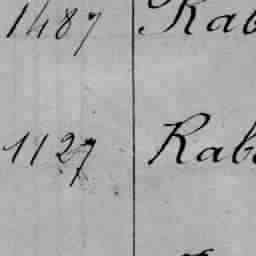 1487 Rab
1127 Rab